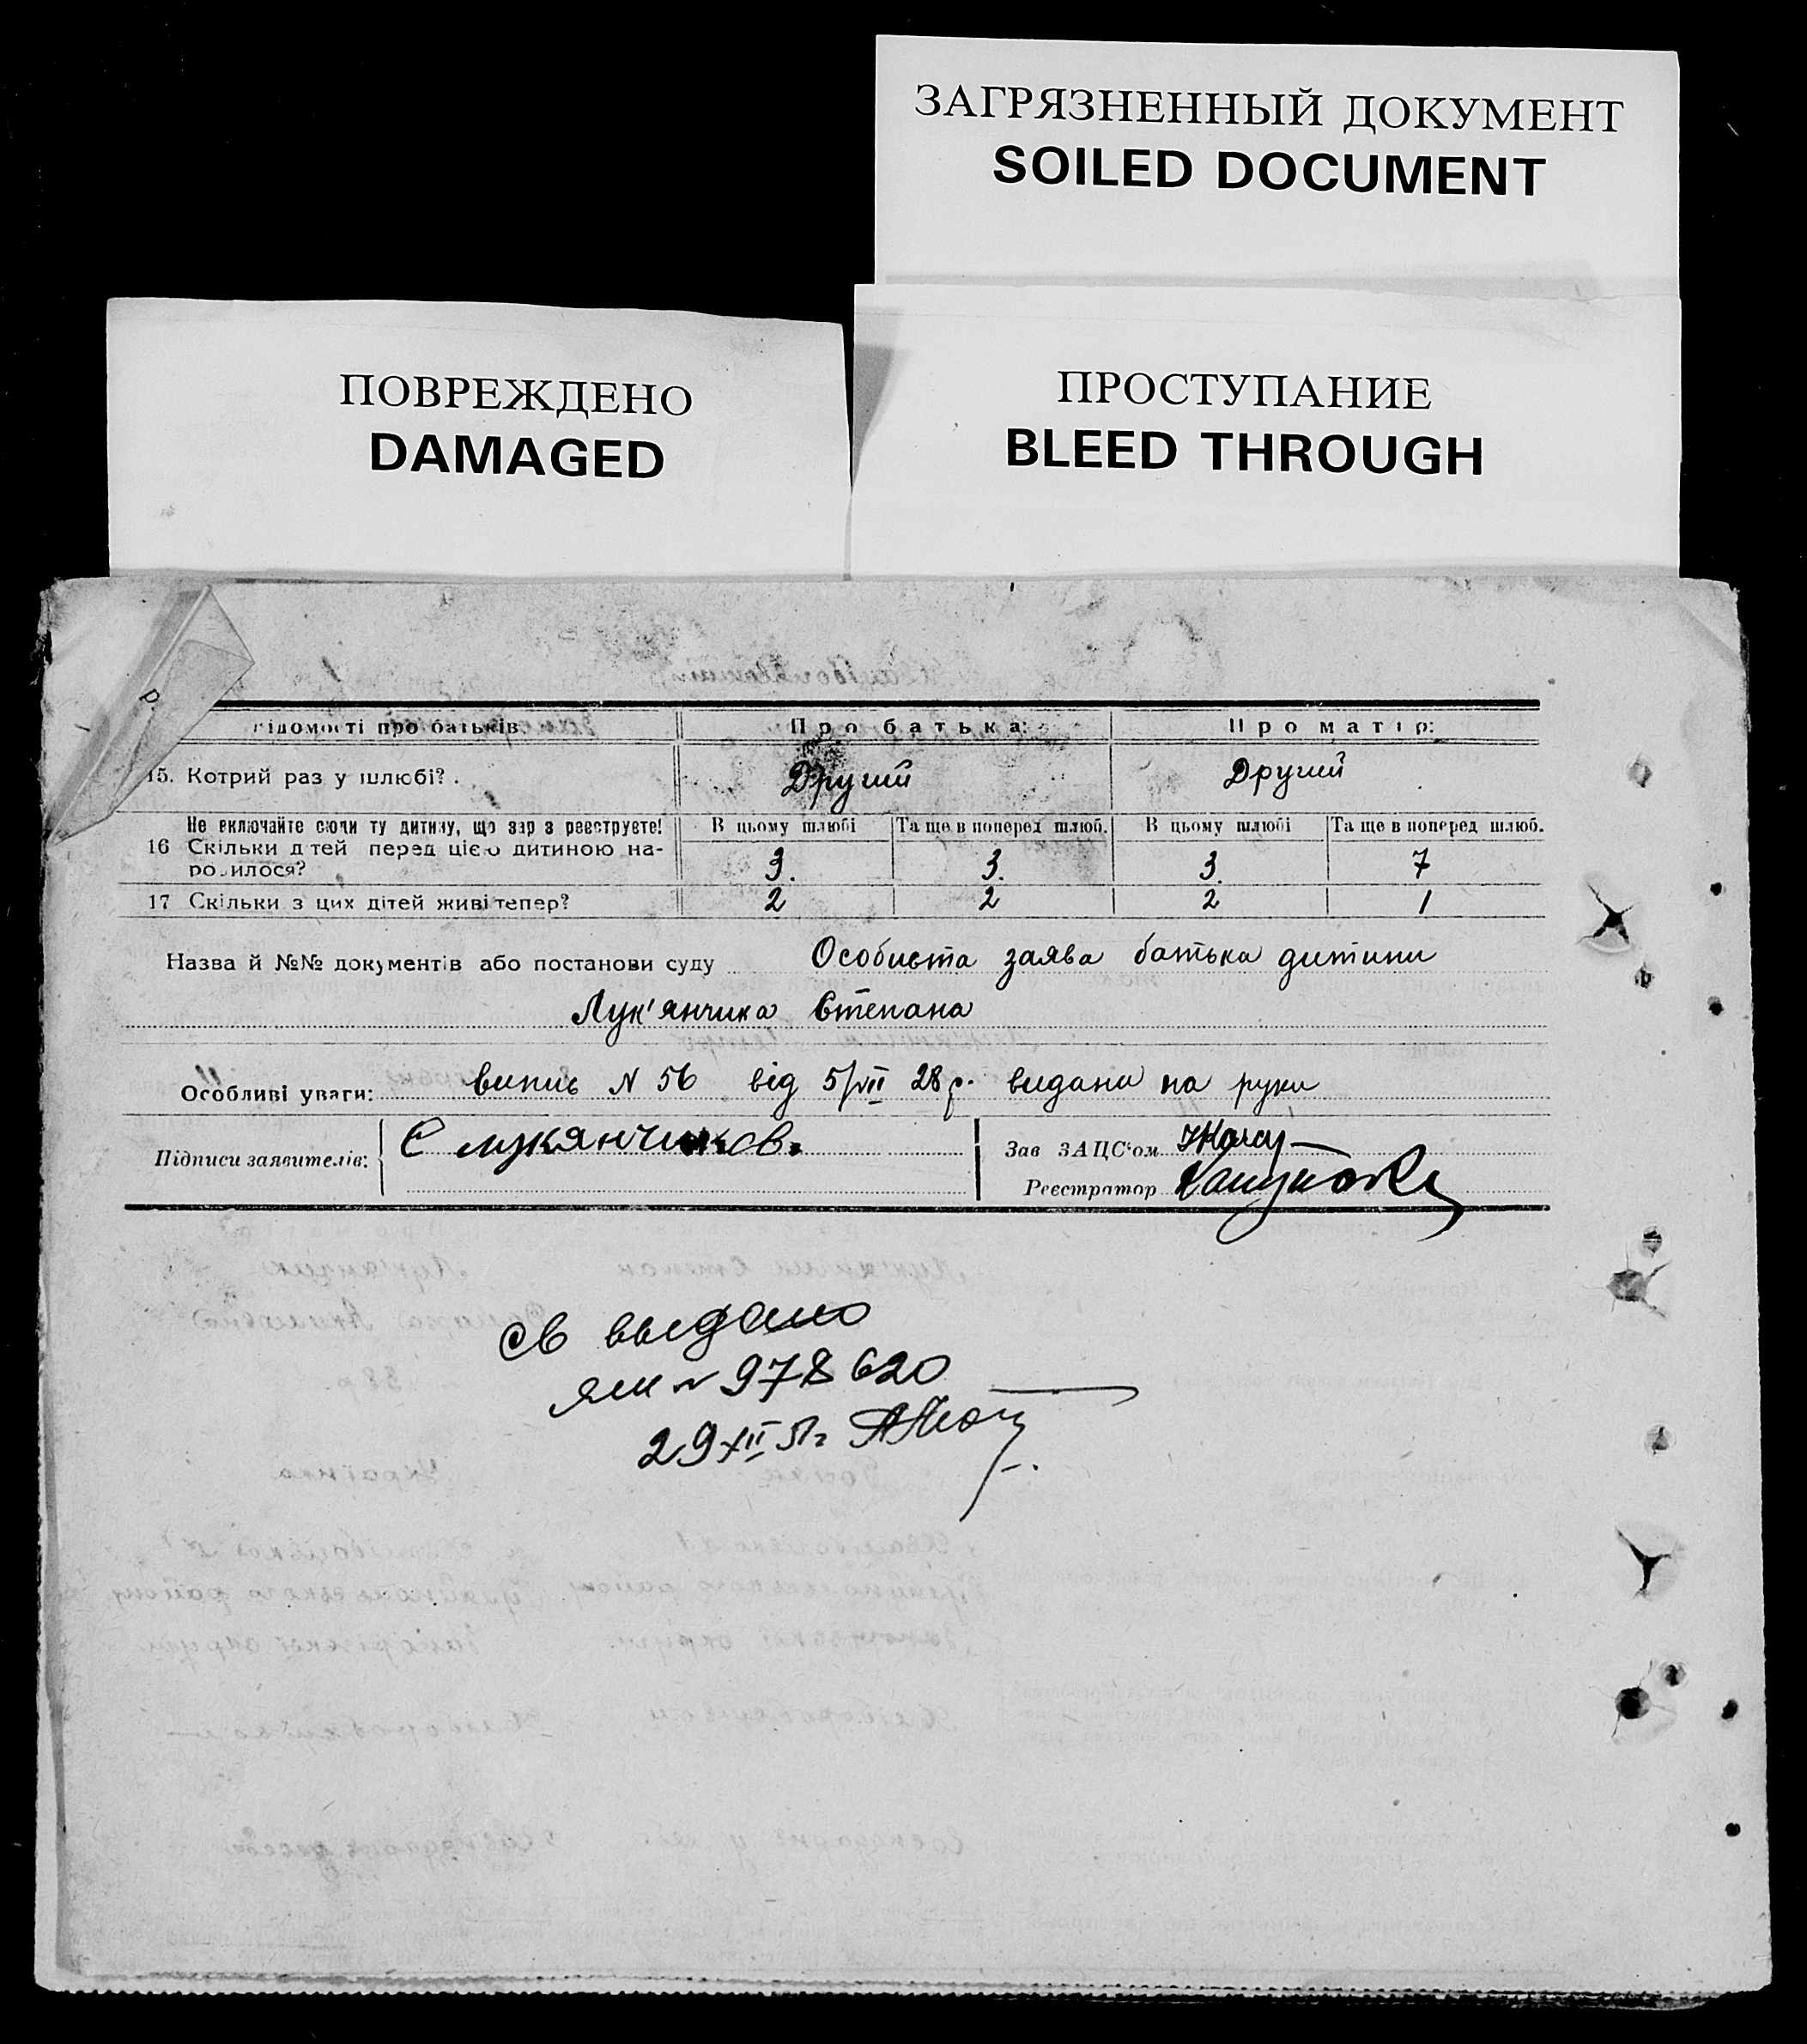 ЗАГРЯЗНЕННЫЙ ДОКУМЕНТ
SOILED DOCUMENT
ПОВРЕЖДЕНО
DAMAGED
ПРОСТУПАНИЕ
BLEED THROUGH
ідомості про батьків Про батька: Про матір:
15. Котрий раз у шлюбі? . Другий Другий
Не включайте сюди ту дитину, що зараз реєструєте! В цьому шлюбі Та ще в поперед шлюб. В цьому шлюбі Та ще в поперед шлюб.
16 Скільки дітей перед цією дитиною на-
родилося? 3. 3. 3. 7
17 Скільки з цих дітей живі тепер? 2 2 2 1
Назва й №№ документів або постанови суду Особиста заява батька дитини
Лук'янчика Степана
Особливі уваги: випис N 56 від 5/VII 28 р. видана на руки
Підписи заявителів: С лукянчиков.
Зав ЗАЦС'ом
Реєстратор
св выдано
ЯЛИ N 978620
29 XII 51г